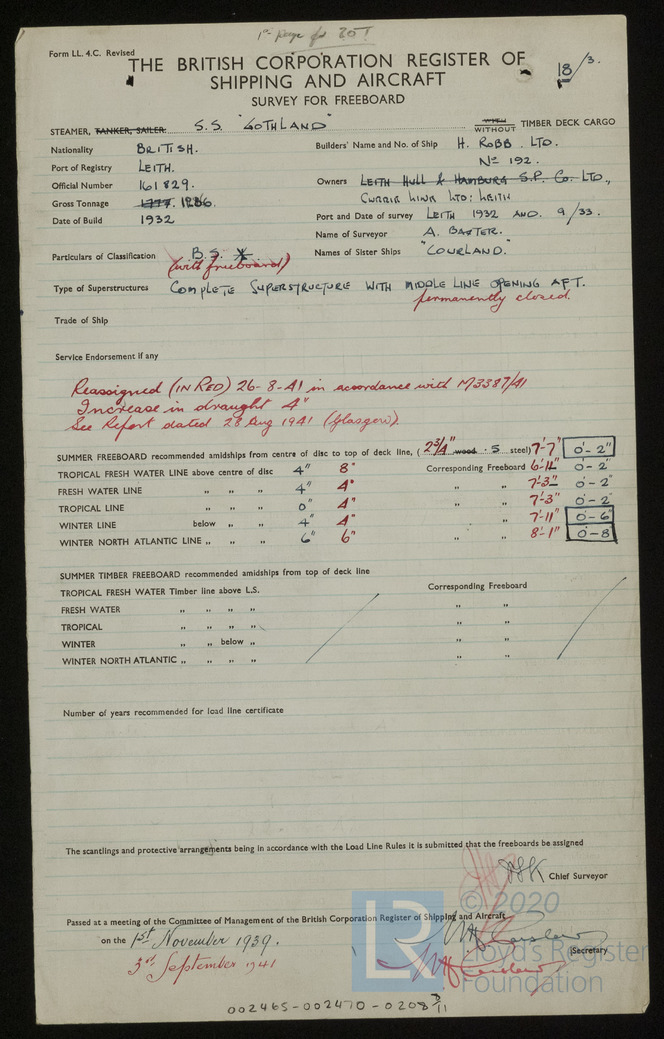 1st page for 20T
Form LL. 4.C. Revised
THE BRITISH CORPORATION REGISTER OF
SHIPPING AND AIRCRAFT
18/3.
SURVEY FOR FREEBOARD
STEAMER, TANKER, SAILER. S.S. "GOTHLAND" WITH WITHOUT TIMBER DECK CARGO
Nationality BRITISH. Builders' Name and No. of Ship H. ROBB LTD.
Port of Registry LEITH. No 192.
Official Number 161829. Owners LEITH HULL & HAMBURG S.P. Co. LTD.,
Gross Tonnage 1286. CURRIE LINE LTD: LEITH
Date of Build 1932 Port and Date of survey LEITH 1932 AND. 9/33.
Name of Surveyor A. BAXTER.
Particulars of Classification B.S. * Names of Sister Ships "COURLAND."
(with freeboard)
Type of Superstructures COMPLETE SUPERSTRUCTURE WITH MIDDLE LINE OPENING AFT.
permanently closed.
Trade of Ship
Service Endorsement if any
Reassigned (IN RED) 26-8-41 in accordance with M3387/41
Increase in draught 4"
See Report dated 28 Aug 1941 (Glasgow).
SUMMER FREEBOARD recommended amidships from centre of disc to top of deck line, ( 2 3/4" wood · 5 steel) 7'-7" 0'-2"
TROPICAL FRESH WATER LINE above centre of disc 4" 8" Corresponding Freeboard 6'-11" 0'-2"
FRESH WATER LINE " " " 4" 4" " " 7'-3" 0'-2"
TROPICAL LINE " " " 0" 4" " 7'-3" 0'-2
WINTER LINE below " " 4" 4" " 7'-11" 0'-6"
WINTER NORTH ATLANTIC LINE " " " 6" 6" " " 8'-1" 0'-8
SUMMER TIMBER FREEBOARD recommended amidships from top of deck line
TROPICAL FRESH WATER Timber line above L.S. Corresponding Freeboard
FRESH WATER " " " " " "
TROPICAL " " " " " "
WINTER " " below " " "
WINTER NORTH ATLANTIC " " " " " "
Number of years recommended for load line certificate
The scantlings and protective arrangements being in accordance with the Load Line Rules it is submitted that the freeboards be assigned
Chief Surveyor
© 2020
Passed at a meeting of the Committee of Management of the British Corporation Register of Shipping and Aircraft
on the 1st November 1939.
Secretary
3rd September 1941
LR
Lloyd's Register
Foundation
002465-002470-0208